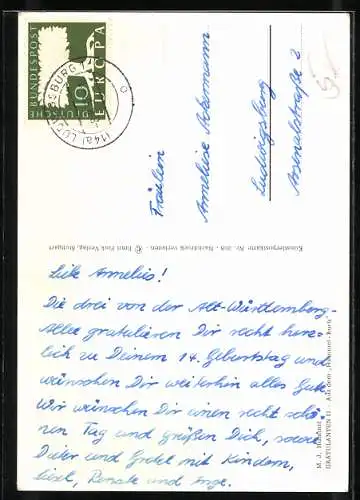 DEUTSCHE BUNDESPOST
10
EUROPA
(14a) LUDWIGSBURG
Fräulein
Annelise Ackermann
Ludwigsburg
Arsenalstraße 2
Künstlerpostkarte Nr. - Nachdruck verboten - © Ernst Fink Verlag, Stuttgart
Liebe Annelies!
Die drei von der Alt-Württemberg-
Allee gratulieren Dir recht herz-
lich zu Deinem 14. Geburtstag und
wünschen Dir weiterhin alles Gute.
Wir wünschen Dir einen recht schö-
nen Tag und grüßen Dich, sowie
Dieter und Gretel mit Kindern,
Liesel, Renate und Inge.
M. J. Hummel
GRATULANTEN II - Aus dem „Hummel-Buch"